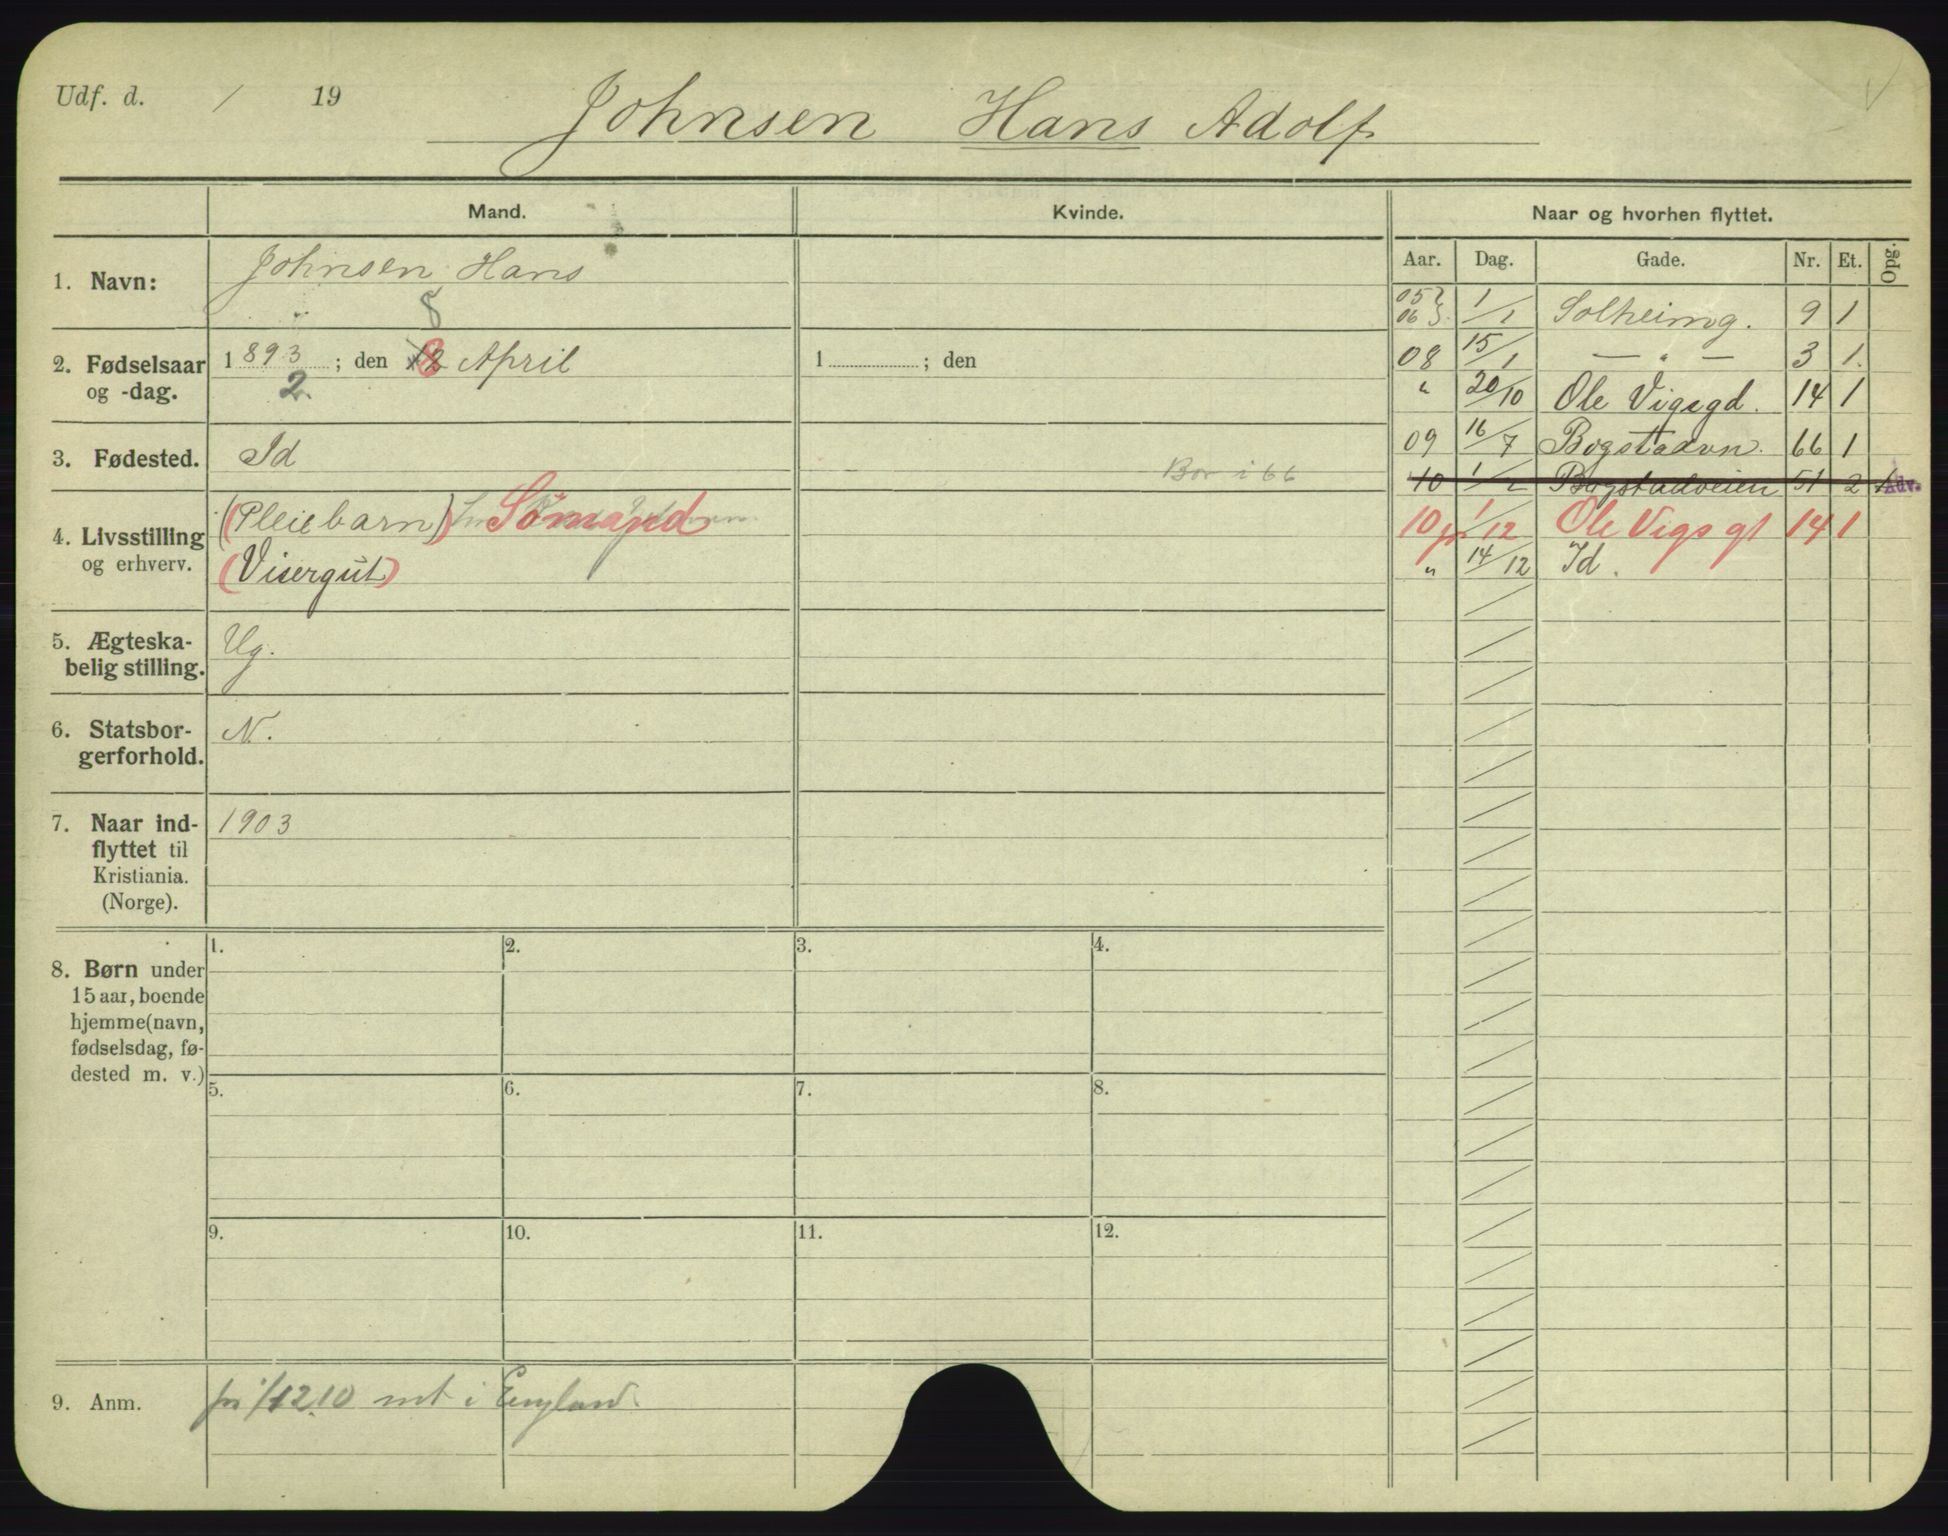 Udf. d. / 19
Johnsen Hans Adolf
Mand.
Kvinde.
Naar og hvorhen flyttet.
Aar. Dag. Gade. Nr. Et. Opg.
1. Navn: Johnsen Hans
8
2. Fødselsaar og -dag. 1893; den 8 April
2.
1 ; den
3. Fødested. Id
Bor i 66
4. Livsstilling og erhverv. (Pleiebarn) Sømand
(Visergut)
5. Ægteska-
belig stilling. Ug.
6. Statsbor-
gerforhold. N.
7. Naar ind-
flyttet til
Kristiania.
(Norge).
1903
8. Børn under
15 aar, boende
hjemme (navn,
fødselsdag, fø-
dested m. v.)
1. 2. 3. 4.
5. 6. 7. 8.
9. 10. 11. 12.
9. Anm. fri 1/12 10 mt i England.
05 06 1/1 Solheimg. 9 1
08 15/1 — " — 3 1.
" 20/10 Ole Vigsgd. 14 1
09 16/7 Bogstadvn. 66 1
10 1/2 Bogstadveien 51 2 Adv.
10 1/12 Ole Vigs gt 14 1
" 14/12 Id.